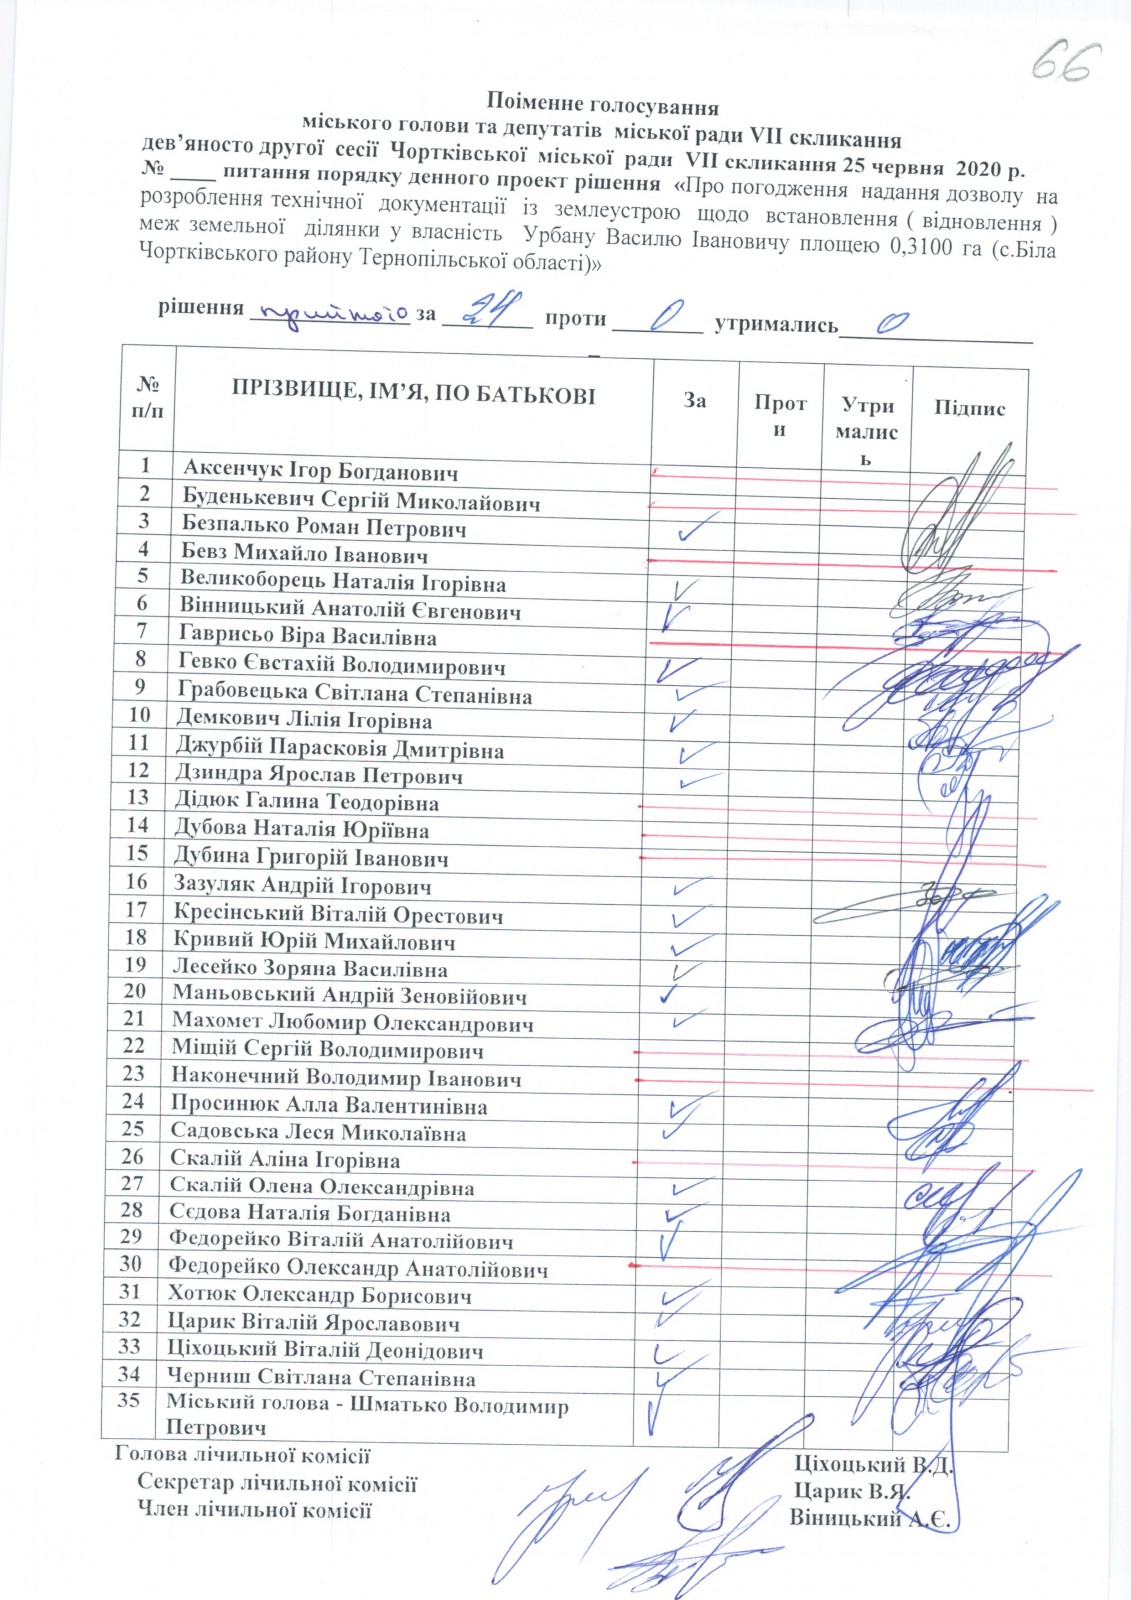 66
Поіменне голосування
міського голови та депутатів міської ради VII скликання
дев’яносто другої сесії Чортківської міської ради VII скликання 25 червня 2020 р.
№ ____ питання порядку денного проект рішення «Про погодження надання дозволу на
розроблення технічної документації із землеустрою щодо встановлення ( відновлення )
меж земельної ділянки у власність Урбану Василю Івановичу площею 0,3100 га (с.Біла
Чортківського району Тернопільської області)»
рішення прийнято за 24 проти 0 утримались 0
№ п/п ПРІЗВИЩЕ, ІМ’Я, ПО БАТЬКОВІ За Проти Утримались Підпис
1 Аксенчук Ігор Богданович
2 Буденькевич Сергій Миколайович
3 Безпалько Роман Петрович ✓
4 Бевз Михайло Іванович
5 Великоборець Наталія Ігорівна ✓
6 Вінницький Анатолій Євгенович ✓
7 Гаврисьо Віра Василівна
8 Гевко Євстахій Володимирович ✓
9 Грабовецька Світлана Степанівна ✓
10 Демкович Лілія Ігорівна ✓
11 Джурбій Парасковія Дмитрівна ✓
12 Дзиндра Ярослав Петрович ✓
13 Дідюк Галина Теодорівна
14 Дубова Наталія Юріївна
15 Дубина Григорій Іванович
16 Зазуляк Андрій Ігорович ✓
17 Кресінський Віталій Орестович ✓
18 Кривий Юрій Михайлович ✓
19 Лесейко Зоряна Василівна ✓
20 Маньовський Андрій Зеновійович ✓
21 Махомет Любомир Олександрович ✓
22 Міщій Сергій Володимирович
23 Наконечний Володимир Іванович
24 Просинюк Алла Валентинівна ✓
25 Садовська Леся Миколаївна ✓
26 Скалій Аліна Ігорівна
27 Скалій Олена Олександрівна ✓
28 Сєдова Наталія Богданівна ✓
29 Федорейко Віталій Анатолійович ✓
30 Федорейко Олександр Анатолійович
31 Хотюк Олександр Борисович ✓
32 Царик Віталій Ярославович ✓
33 Ціхоцький Віталій Деонідович ✓
34 Черниш Світлана Степанівна ✓
35 Міський голова - Шматько Володимир ✓
Петрович
Голова лічильної комісії Ціхоцький В.Д.
Секретар лічильної комісії Царик В.Я.
Член лічильної комісії Віницький А.Є.